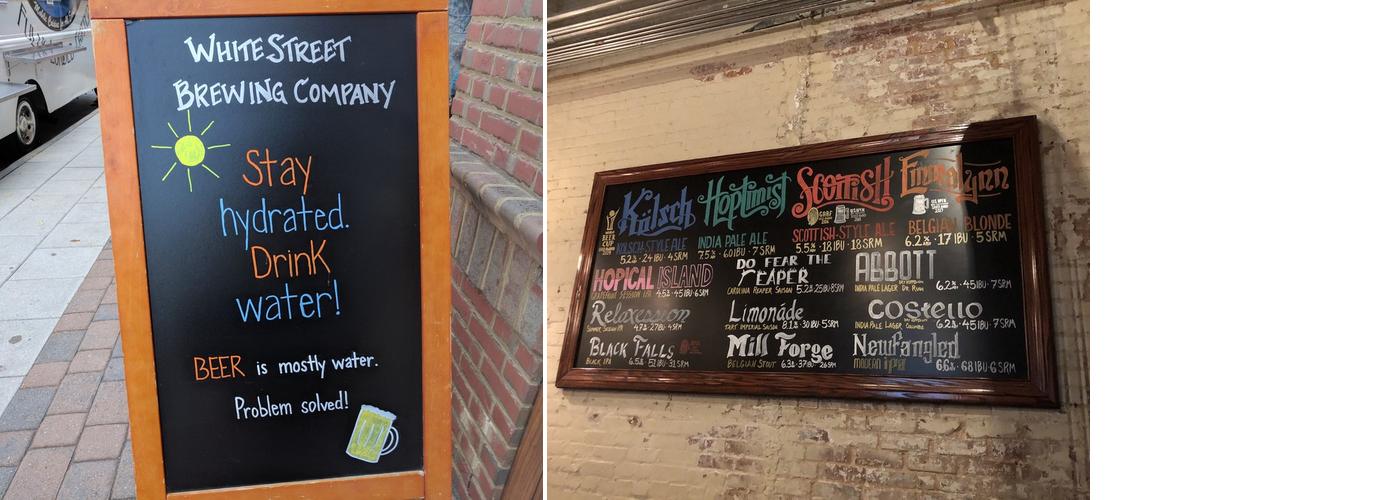 WHITE STREET
BREWING COMPANY
Stay
hydrated.
Drink
water!
BEER is mostly water.
Problem solved!
Kölsch Hoptimist Scottish EmmaLynn
WORLD BEER CUP
KÖLSCH-STYLE ALE INDIA PALE ALE SCOTTISH-STYLE ALE BELGIAN BLONDE
5.2% · 24 IBU · 4 SRM 7.5% · 60 IBU · 7 SRM 5.5% · 18 IBU · 18 SRM 6.2% · 17 IBU · 5 SRM
HOPICAL ISLAND DO FEAR THE REAPER ABBOTT
GRAPEFRUIT SESSION IPA 4.5% · 45 IBU · 6 SRM CAROLINA REAPER SAISON 5.2% · 25 IBU · 8 SRM INDIA PALE LAGER 6.2% · 45 IBU · 7 SRM
Relaxession Limonáde Costello
SUMMER SESSION IPA 4.7% · 27 IBU · 4 SRM TART IMPERIAL SAISON 8.1% · 30 IBU · 5 SRM INDIA PALE LAGER 6.2% · 45 IBU · 7 SRM
BLACK FALLS Mill Forge Newfangled
BLACK IPA 6.5% · 51 IBU · 31 SRM BELGIAN STOUT 6.3% · 37 IBU · 26 SRM MODERN IPA 6.6% · 68 IBU · 6 SRM